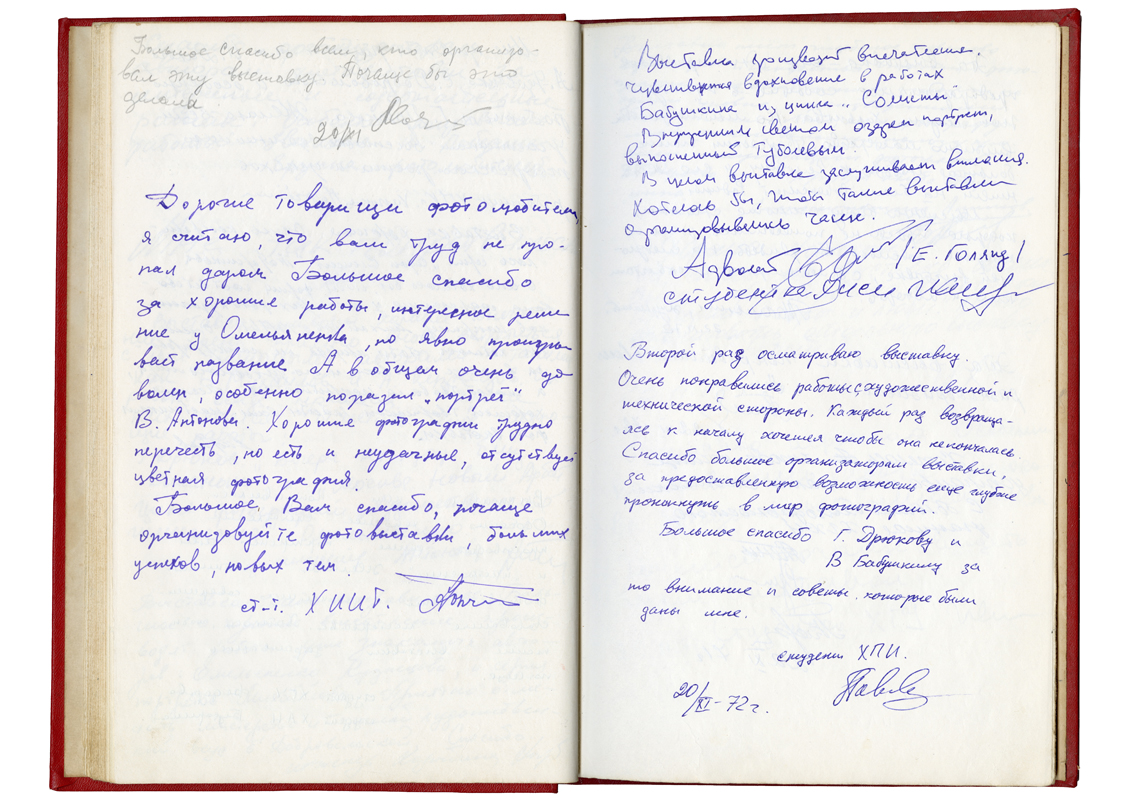 Большое спасибо всем, кто организо-
вал эту выставку. Почаще бы это
делали
20/XI
Дорогие товарищи фотолюбители,
я считаю, что ваш труд не про-
пал даром. Большое спасибо
за хорошие работы, интересное реше
ние у Омельяненка, но явно проигры
вает название. А в общем очень до
волен, особенно поразил „портрет"
В. Антоновы. Хорошие фотографии трудно
перечесть, но есть и неудачные, отсутствует
цветная фотография.
Большое Вам спасибо, почаще
организовуйте фотовыставки, больших
успехов, новых тем.
ст-т. ХИИТ.
Выставка производит впечатление.
Чувствуется вдохновение в работах
Бабушкина из цикла „Солисты"
Внутренним светом озарен портрет,
выполненный Туболевым.
В целом выставка заслуживает внимания.
Хотелось бы, чтобы такие выставки
организовывались чаще.
Адвокат /Е. Голянд/
студентка
Второй раз осматриваю выставку.
Очень понравились работы с художественной и
технической стороны. Каждый раз возвраща-
ясь к началу хочется чтобы она не кончалась.
Спасибо большое организаторам выставки,
за предоставленную возможность еще глубже
проникнуть в мир фотографий.
Большое спасибо Г. Дрюкову и
В Бабушкину за
то внимание и советы. которые были
даны мне.
студент ХПИ.
20/XI-72 г.